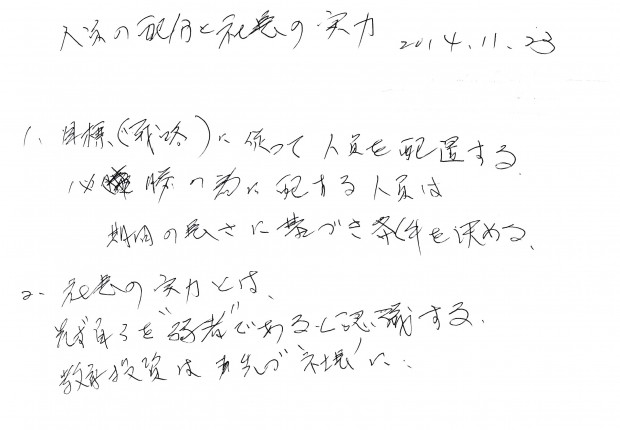 人の配分と社長の実力 2014.11.23
1. 目標(戦略)に依って人員を配置する
必勝の為に配する人員は
期間の長さに基づき条件を決める、
2. 社長の実力とは、
先ず自らを“弱者”であると認識する.
教育投資は 先づ“社長”に.